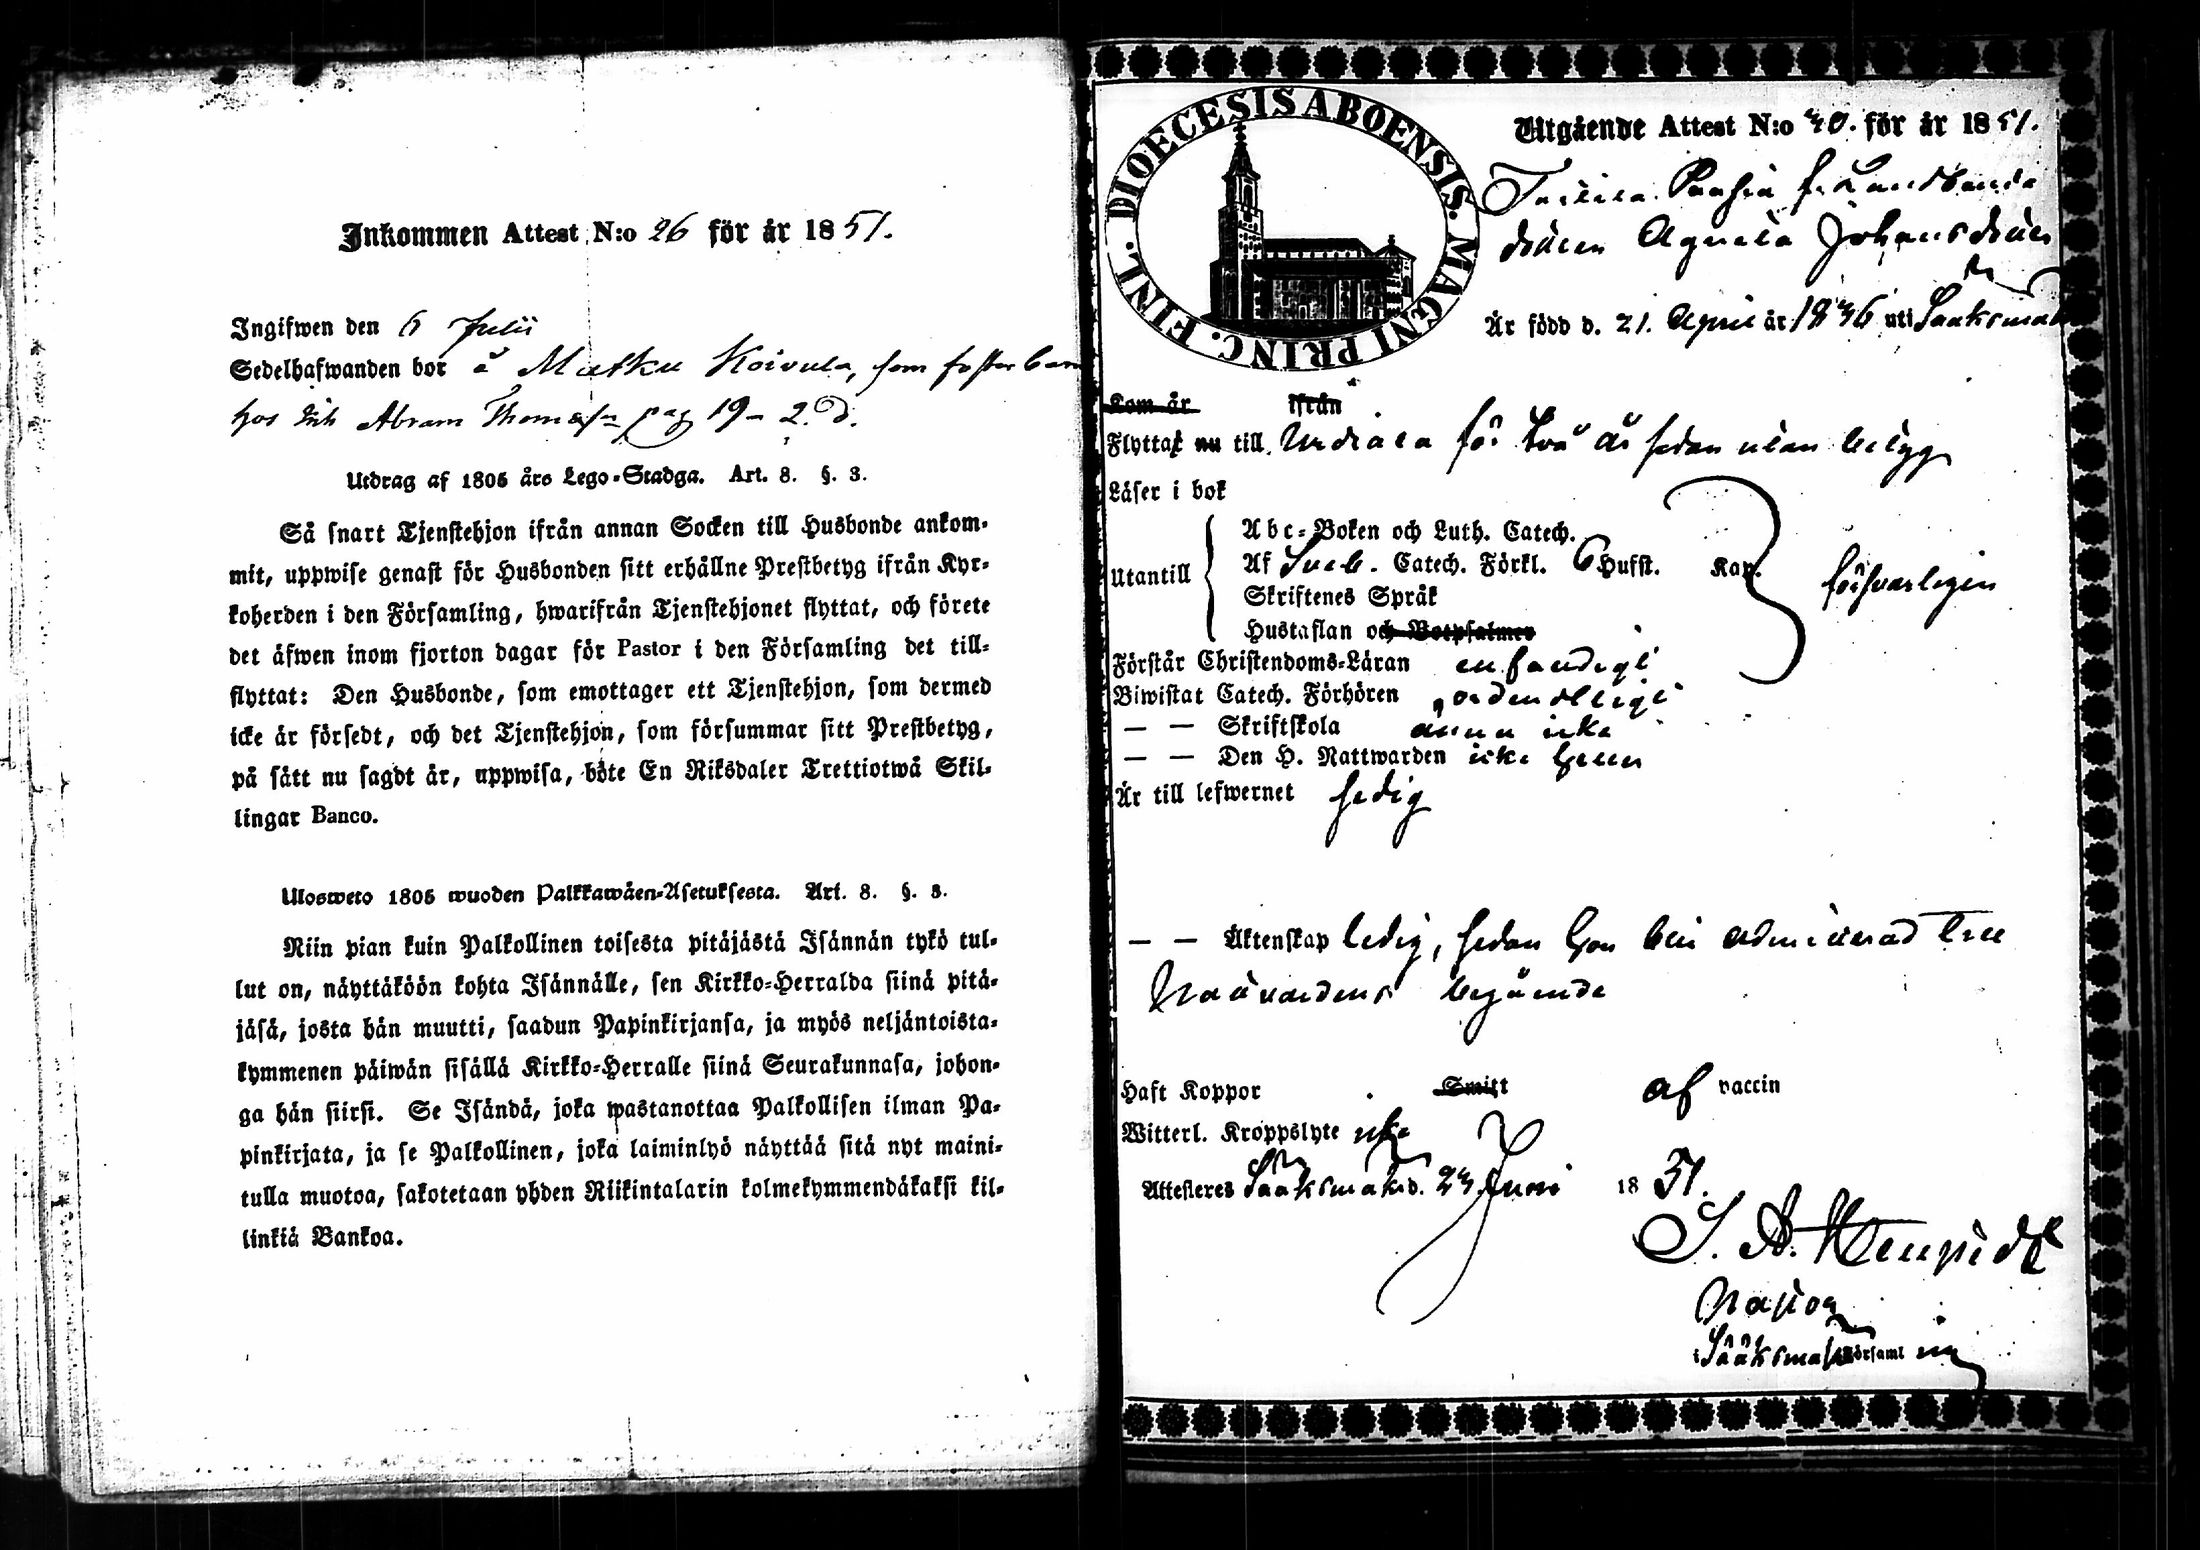 Inkommen Attest N:o 26 för år 1851.
Ingifwen den 6 Julii
Sedelhafwanden bor å Matku Koivula, som fosterbarn
hos Abram Thomasson pag 19 - 2.
Utdrag af 1805 års Lego-Stadga. Art. 8. §. 3.
Så snart Tjenstehjon ifrån annan Socken till Husbonde ankom-
mit, uppwise genast för Husbonden sitt erhållne Prestbetyg ifrån Kyr-
koherden i den Församling, hwarifrån Tjenstehjonet flyttat, och förete
det äfwen inom fjorton dagar för Pastor i den Församling det till-
flyttat: Den Husbonde, som emottager ett Tjenstehjon, som dermed
icke är försedt, och det Tjenstehjon, som försummar sitt Prestbetyg,
på sätt nu sagdt är, uppwisa, böte En Riksdaler Trettiotwå Skil-
lingar Banco.
Ulosweto 1805 wuoden Palkkawäen-Asetuksesta. Art. 8. §. 3.
Niin pian kuin Palkollinen toisesta pitäjästä Isännän tykö tul-
lut on, näyttäköön kohta Isännälle, sen Kirkko-Herralda siinä pitä-
jäsä, josta hän muutti, saadun Papinkirjansa, ja myös neljäntoista-
kymmenen päiwän sisällä Kirkko-Herralle siinä Seurakunnasa, johon-
ga hän siirsi. Se Isändä, joka wastanottaa Palkollisen ilman Pa-
pinkirjata, ja se Palkollinen, joka laiminlyö näyttää sitä nyt maini-
tulla muotoa, sakotetaan yhden Riikintalarin kolmekymmendäkaksi kil-
linkiä Bankoa.
FINL. DIOECESIS ABOENSIS. MAGNI PRINC.
Utgående Attest N:o 40. för år 1851.
f. Landbonde
dottren Agneta Johansdotter
Är född d. 21. April år 1836 uti Sääksmäki
Kom år ifrån
Flyttat nu till Urdiala för två år sedan utan betyg
Läser i bok
Utantill
Abc-Boken och Luth. Catech.
Af Sveb. Catech. Förkl. 6 Hufst. Kap.
Skriftenes Språk
Hustaflan och Botpsalmer
försvarligen
Förstår Christendoms-Läran enfaldigt
Biwistat Catech. Förhören ordentligt
— — Skriftskola ännu icke
— — Den H. Nattwarden icke heller
Är till lefwernet sedig
— — Äktenskap ledig, sedan hon blir admitterad till
Nattvardens begående
Haft Koppor Smitt af vaccin
Witterl. Kroppslyte icke
Attesteres Sääksmäki d. 24 Juni 1851.
Pastor
i Sääksmäki Församl